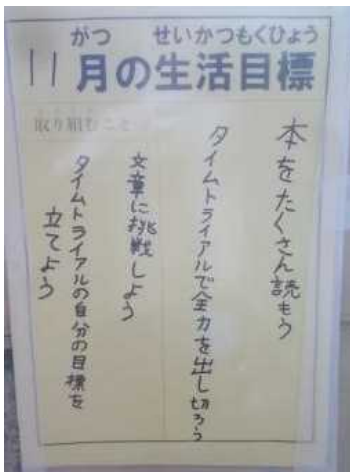 がつ せいかつもくひょう
11月の生活目標
本をたくさん読もう
タイムトライアルで全力を出し切ろう
取り組むこと
文章に挑戦しよう
タイムトライアルの自分の目標を
立てよう